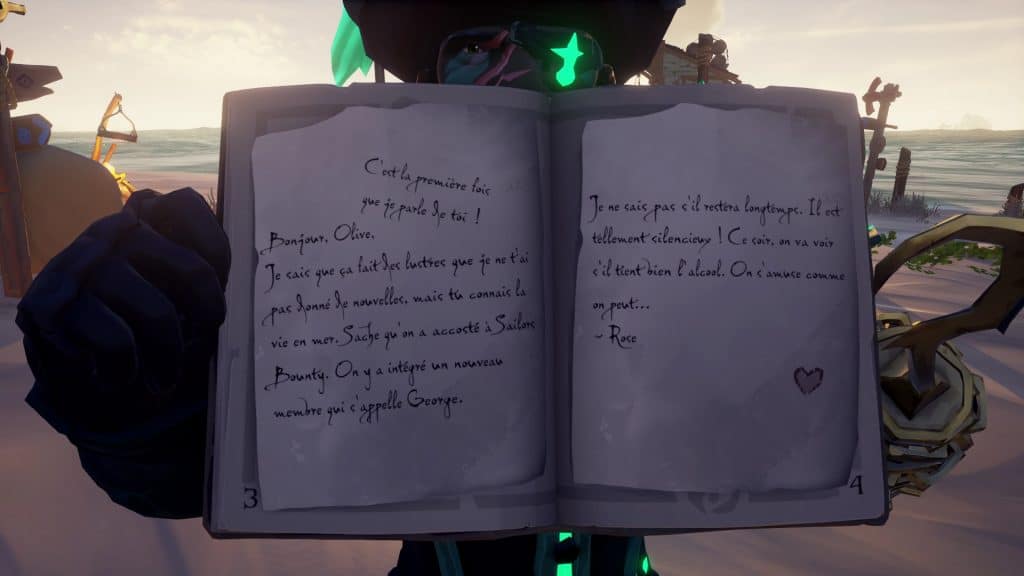 C'est la première fois
que je parle de toi !
Bonjour, Olive.
Je sais que ça fait des lustres que je ne t'ai
pas donné de nouvelles, mais tu connais la
vie en mer. Sache qu'on a accosté à Sailors
Bounty. On y a intégré un nouveau
membre qui s'appelle George.
3
Je ne sais pas s'il restera longtemps. Il est
tellement silencieux ! Ce soir, on va voir
s'il tient bien l'alcool. On s'amuse comme
on peut...
~ Roce
4